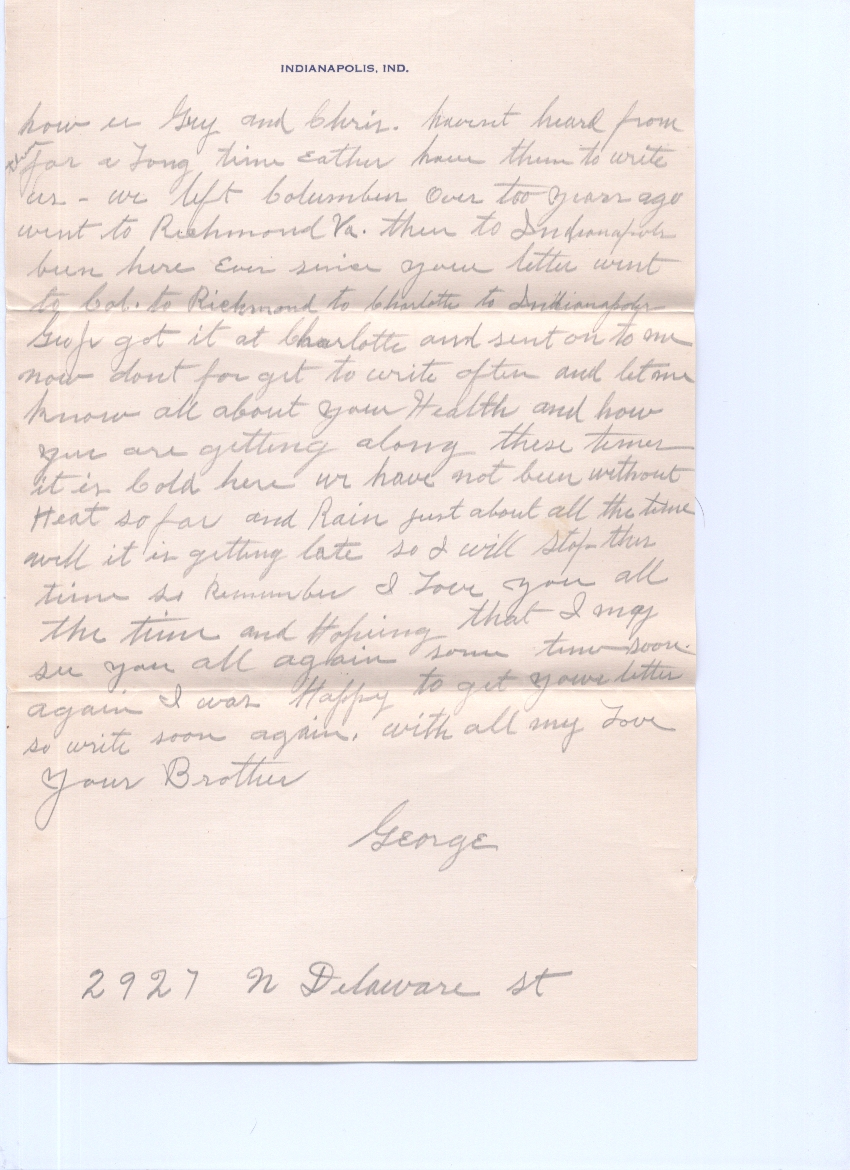 INDIANAPOLIS, IND.
how is Guy and Chris. havent heard from
them
for a Long time Eather have them to write
us - we left Columbus Over too years ago
went to Richmond Va. then to Indianapolis
been here Ever since your letter went
to Col. to Richmond to Charlotte to Indianapolis
got it at Charlotte and sent on to me
now dont forget to write often and let me
know all about your Health and how
you are getting along these times
it is Cold here we have not been without
Heat so far and Rain just about all the time
well it is getting late so I will stop this
time so Remember I Love you all
the time and Hopeing that I may
see you all again some time soon.
again I was Happy to get your letter
so write soon again. with all my Love
Your Brother
George
2927 N Delaware st